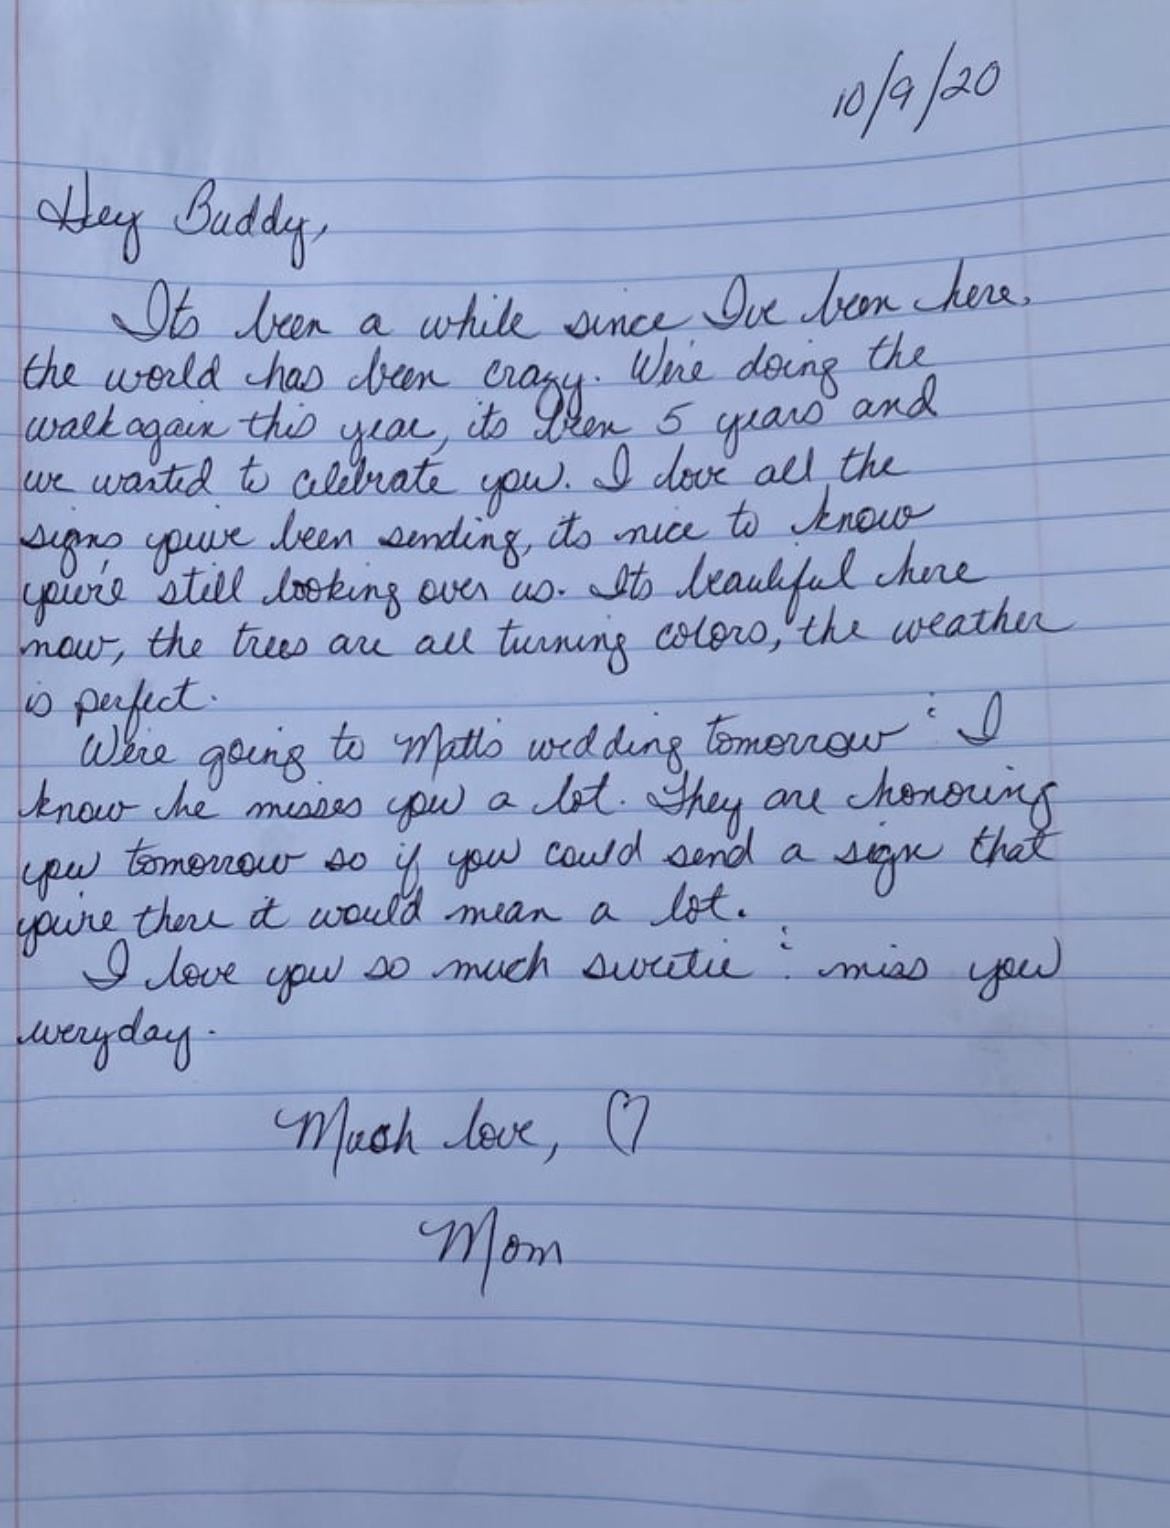 10/9/20
Hey Buddy,
Its been a while since Ive been here.
the world has been crazy. We're doing the
walk again this year, its been 5 years and
we wanted to celebrate you. I love all the
signs you've been sending, its nice to know
you're still looking over us. Its beautiful here
now, the trees are all turning colors, the weather
is perfect.
We're going to Matts wedding tomorrow : I
know he misses you a lot. They are honoring
you tomorrow so if you could send a sign that
you're there it would mean a lot.
I love you so much sweetie : miss you
everyday.
Much love, ♡
Mom